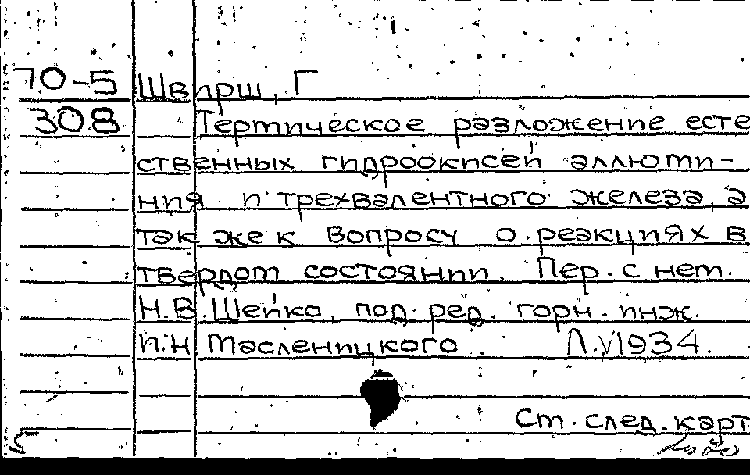 70-5 Швирш, Г
308 Термическое разложение есте
ственных гидроокисей аллюми-
ния и трехвалентного железа, а
так же к вопросу о реакциях в
твердом состоянии. Пер. с нем.
Н.В. Шейко, под. ред. горн. инж.
И.Н Масленицкого. Л. 1934.
Ст. след. карт